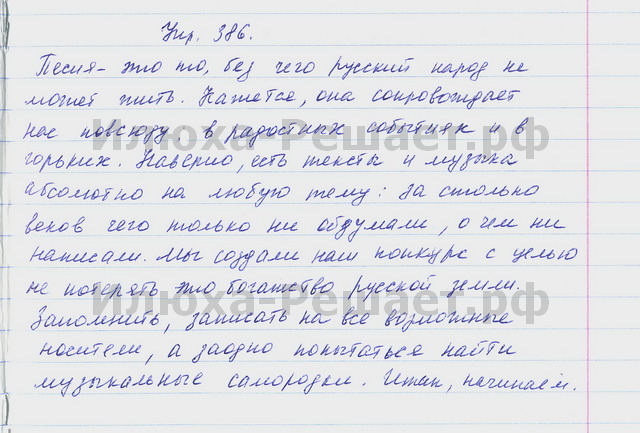 Упр. 386.
Песня – это то, без чего русский народ не
может жить. Кажется, она сопровождает
нас повсюду: в радостных событиях и в
горьких. Наверно, есть тексты и музыка
абсолютно на любую тему: за столько
веков чего только ни обдумали, о чем ни
написали. Мы создали наш конкурс с целью
не потерять это богатство русской земли.
Запомнить, записать на все возможные
носители, а заодно попытаться найти
музыкальные самородки. Итак, начинаем.
Илюха-Решает.рф
Илюха-Решает.рф